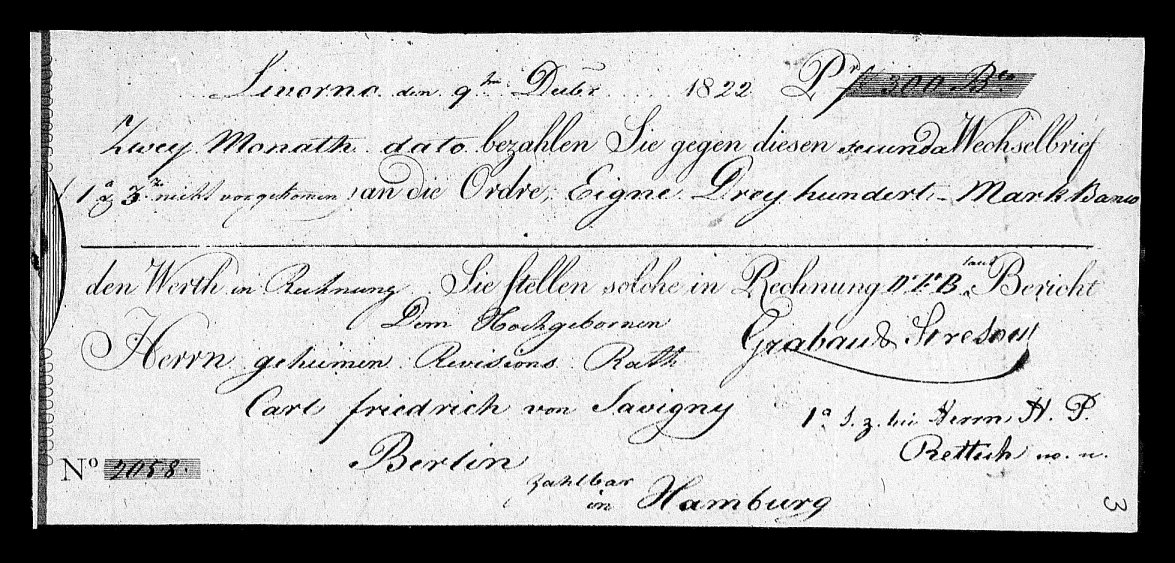 Livorno den 9ten Decbr 1822 Pr ƒ 300 Bco
Zwey Monath dato bezahlen Sie gegen diesen secunda Wechselbrief
1a & 3za nicht vorgekomen an die Ordre, Eigne Drey hundert Mark Banco
den Werth in Rechnung Sie stellen solche in Rechnung laut Bericht
Dem Hochgebornen
Herrn geheimen Revisions Rath
Grabau & Stresow
Carl friedrich von Savigny
1a z. bei Herrn H. P.
Rettich
Berlin
No 2058.
zahlbar
in Hamburg
3